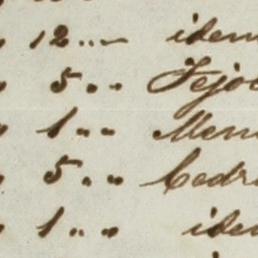 " 12 .. — idem
" 5 .. Tejo
" 1 .. Mem
" 5 .. Cedr
" 1 .. idem